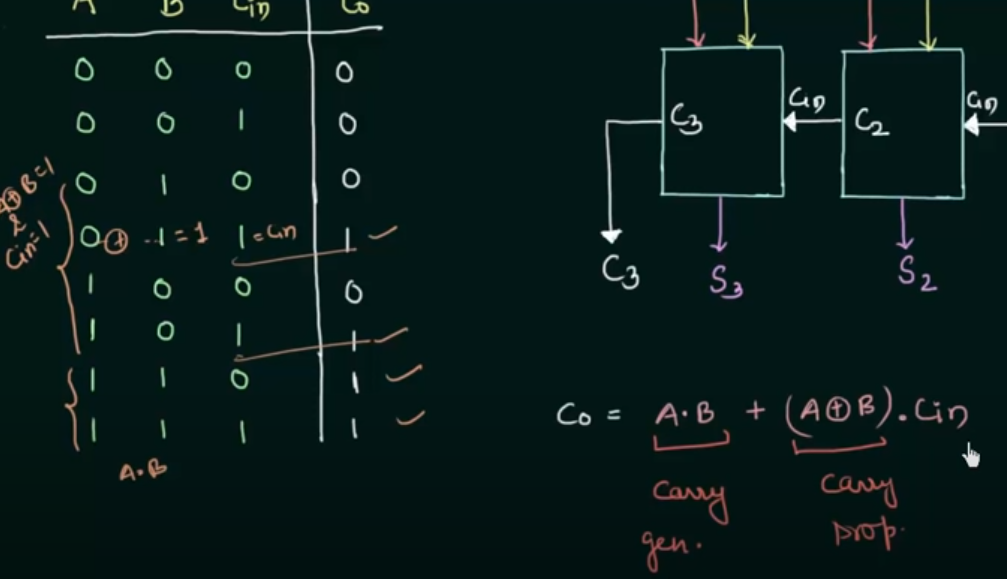 A B Cin Co
0 0 0 0
0 0 1 0
0 1 0 0
0 ⊕ 1 = 1 1 = Cin 1 ✓
1 0 0 0
1 0 1 1 ✓
1 1 0 1 ✓
1 1 1 1 ✓
⊕ B = 1
&
Cin = 1
A·B
C3 Cin C2 Cin
C3 S3 S2
Co = A·B + (A⊕B).Cin
Carry
gen.
Carry
prop.